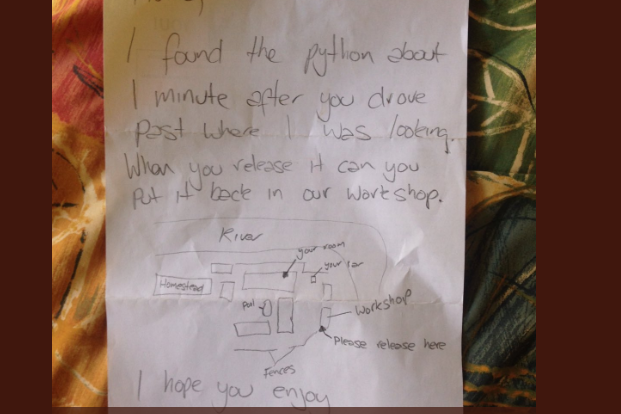 I found the python about
1 minute after you drove
past where I was looking.
When you release it can you
put it back in our workshop.
River
your room
your car
Homestead
Pool
Workshop
Please release here
Fences
I hope you enjoy